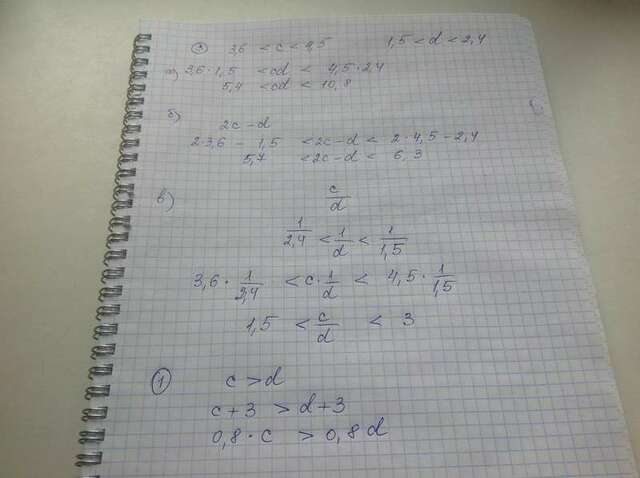 ③ 3,6 < c < 4,5 1,5 < d < 2,4
а) 3,6·1,5 < cd < 4,5·2,4
5,4 < cd < 10,8
б)
2c-d
2·3,6 - 1,5 < 2c-d < 2·4,5-2,4
5,7 < 2c-d < 6,3
в) c/d
1/2,4 < 1/d < 1/1,5
3,6· 1/2,4 < c· 1/d < 4,5· 1/1,5
1,5 < c/d < 3
① c > d
c+3 > d+3
0,8·c > 0,8 d